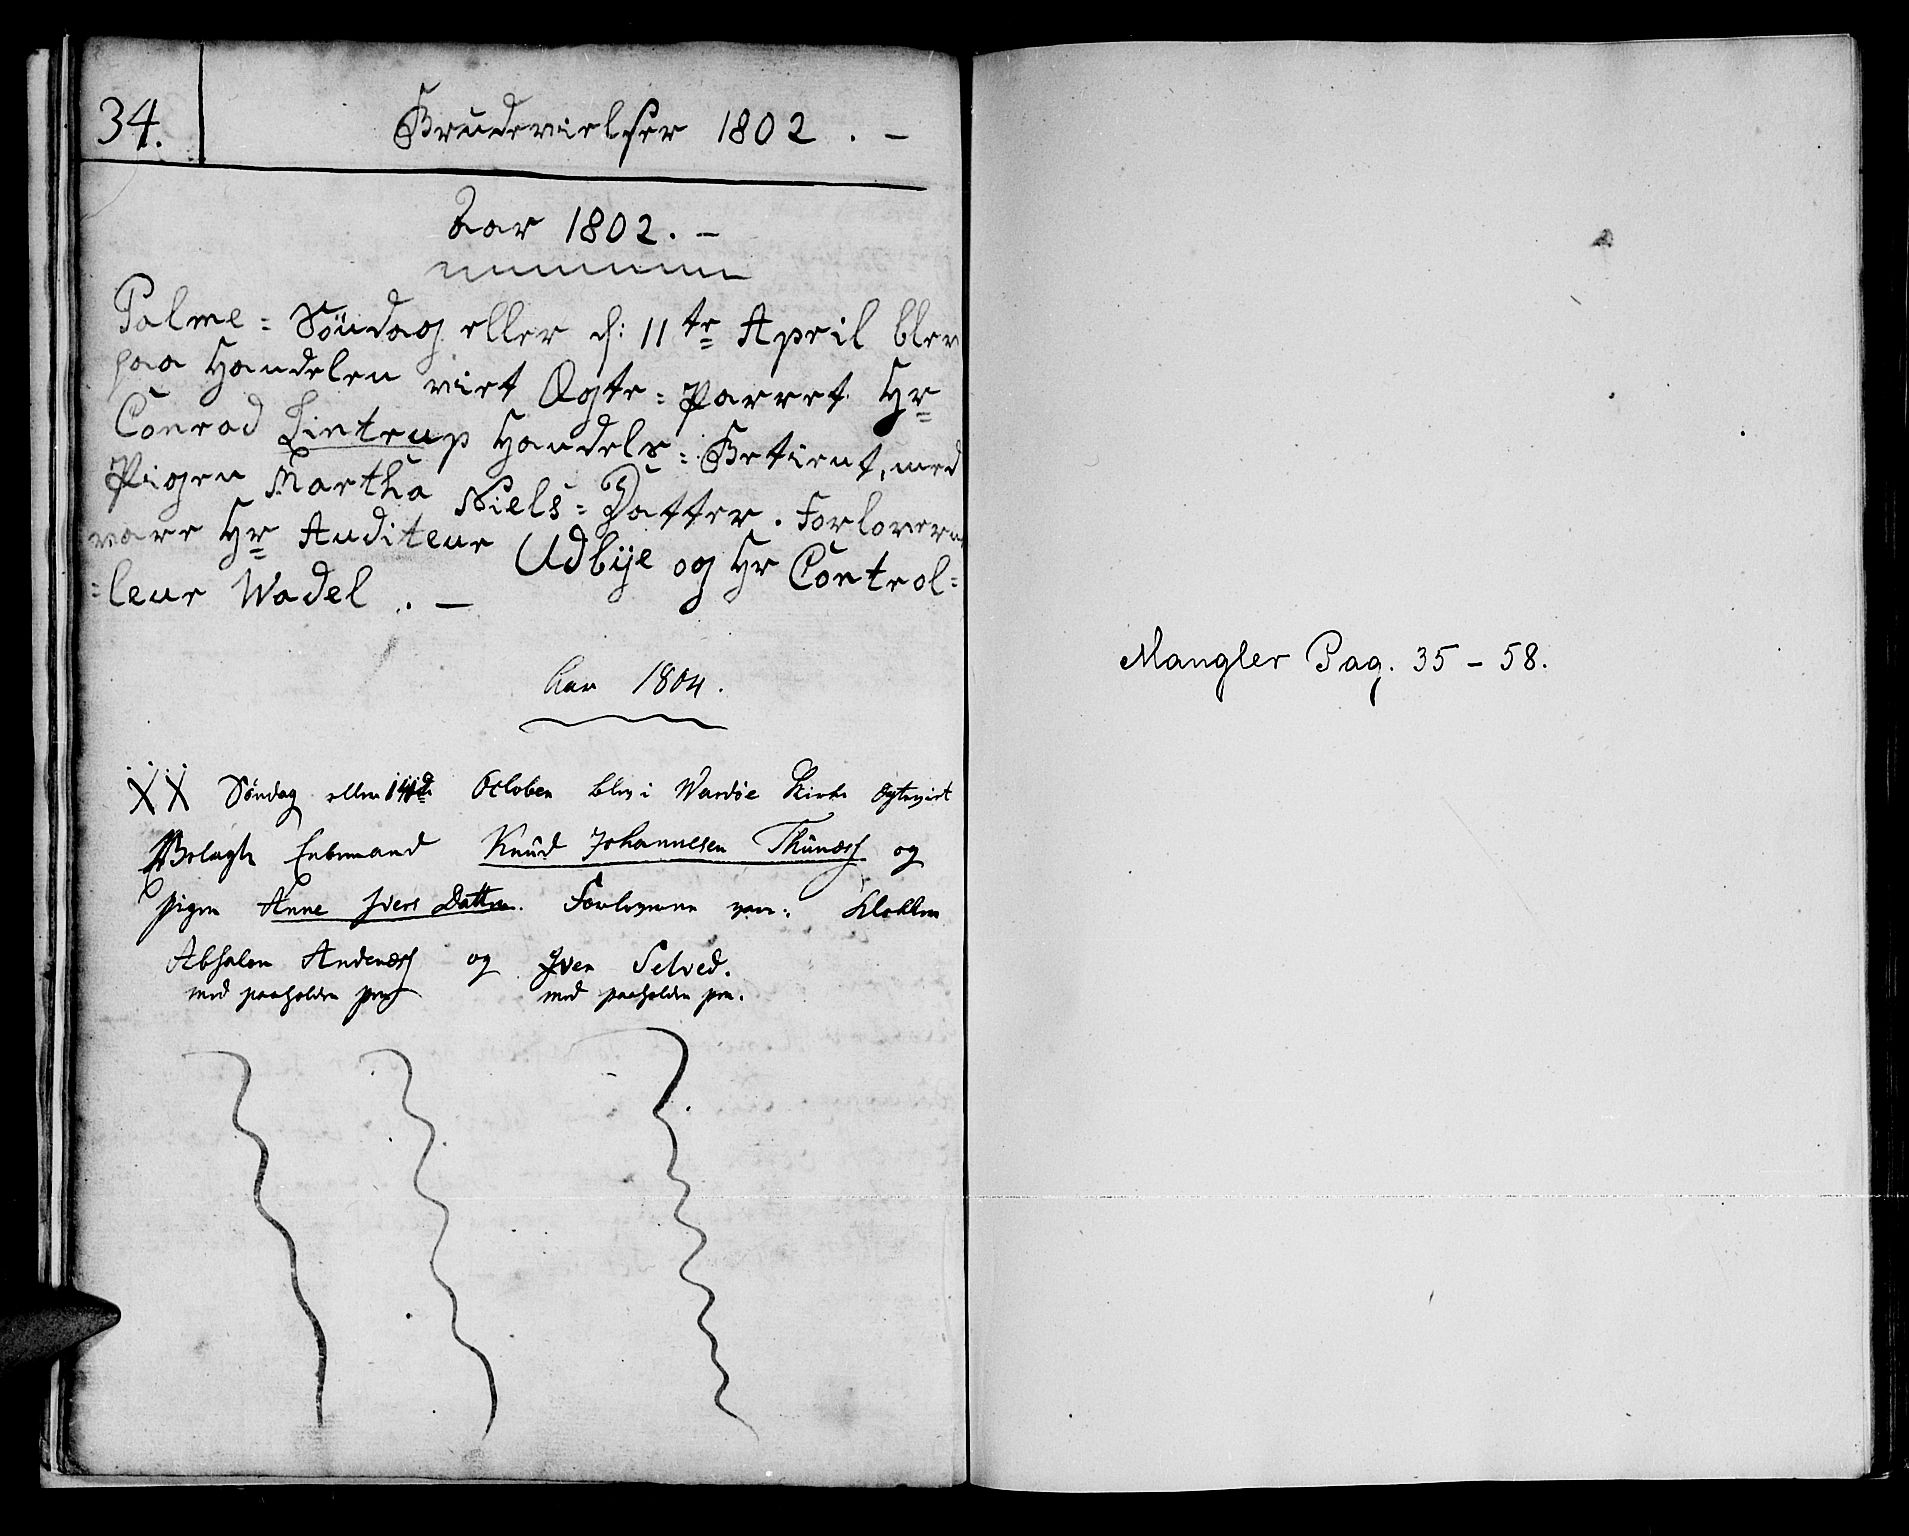 34.
Brudevielser 1802. -
Aar 1802. -
Palme = Søndag eller d: 11te April blev
paa Handelen viet Ægte = Parret Hr
Conrad Lintrup Handels = Betient, med
Pigen Martha Niels = Datter. Forlovere
vare Hr Auditeur Udbye og Hr Control=
=leur Wadel. -
Aar 1804.
XX Søndag eller 14de October blev i Wardøe Kirke Egteviet
Enkemand Knud Johannesen og
Pigen Anne Ivers Datter. Forloverne vare: Klokker
Absalon Anderss og Iver Selved.
med paaholden pen med paaholden pen.
Mangler Pag. 35 - 58.